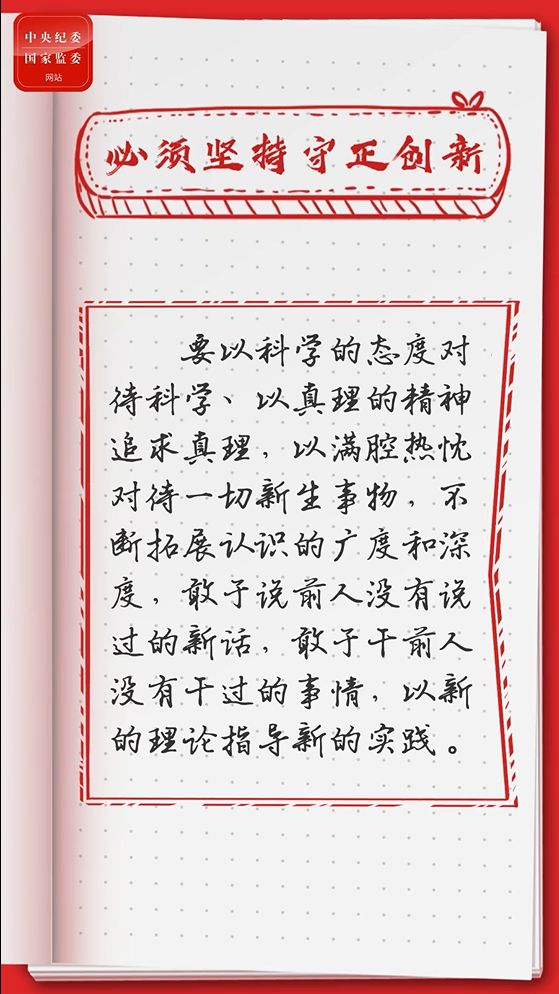 中央纪委
国家监委
网站
必须坚持守正创新
要以科学的态度对
待科学、以真理的精神
追求真理，以满腔热忱
对待一切新生事物，不
断拓展认识的广度和深
度，敢于说前人没有说
过的新话，敢于干前人
没有干过的事情，以新
的理论指导新的实践。